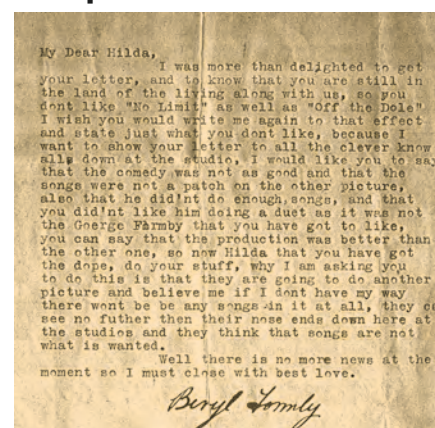 My Dear Hilda,
I was more than delighted to get
your letter, and to know that you are still in
the land of the living along with us, so you
dont like "No Limit" as well as "Off the Dole"
I wish you would write me again to that effect
and state just what you dont like, because I
want to show your letter to all the clever know
alls down at the studio, I would like you to say
that the comedy was not as good and that the
songs were not a patch on the other picture,
also that he did'nt do enough,songs, and that
you did'nt like him doing a duet as it was not
the Goerge Farmby that you have got to like,
you can say that the production was better than
the other one, so now Hilda that you have got
the dope, do your stuff, why I am asking you
to do this is that they are going to do another
picture and believe me if I dont have my way
there wont be be any songs in it at all, they ca
see no futher then their nose ends down here at
the studios and they think that songs are not
what is wanted.
Well there is no more news at the
moment so I must close with best love.
Beryl Formby